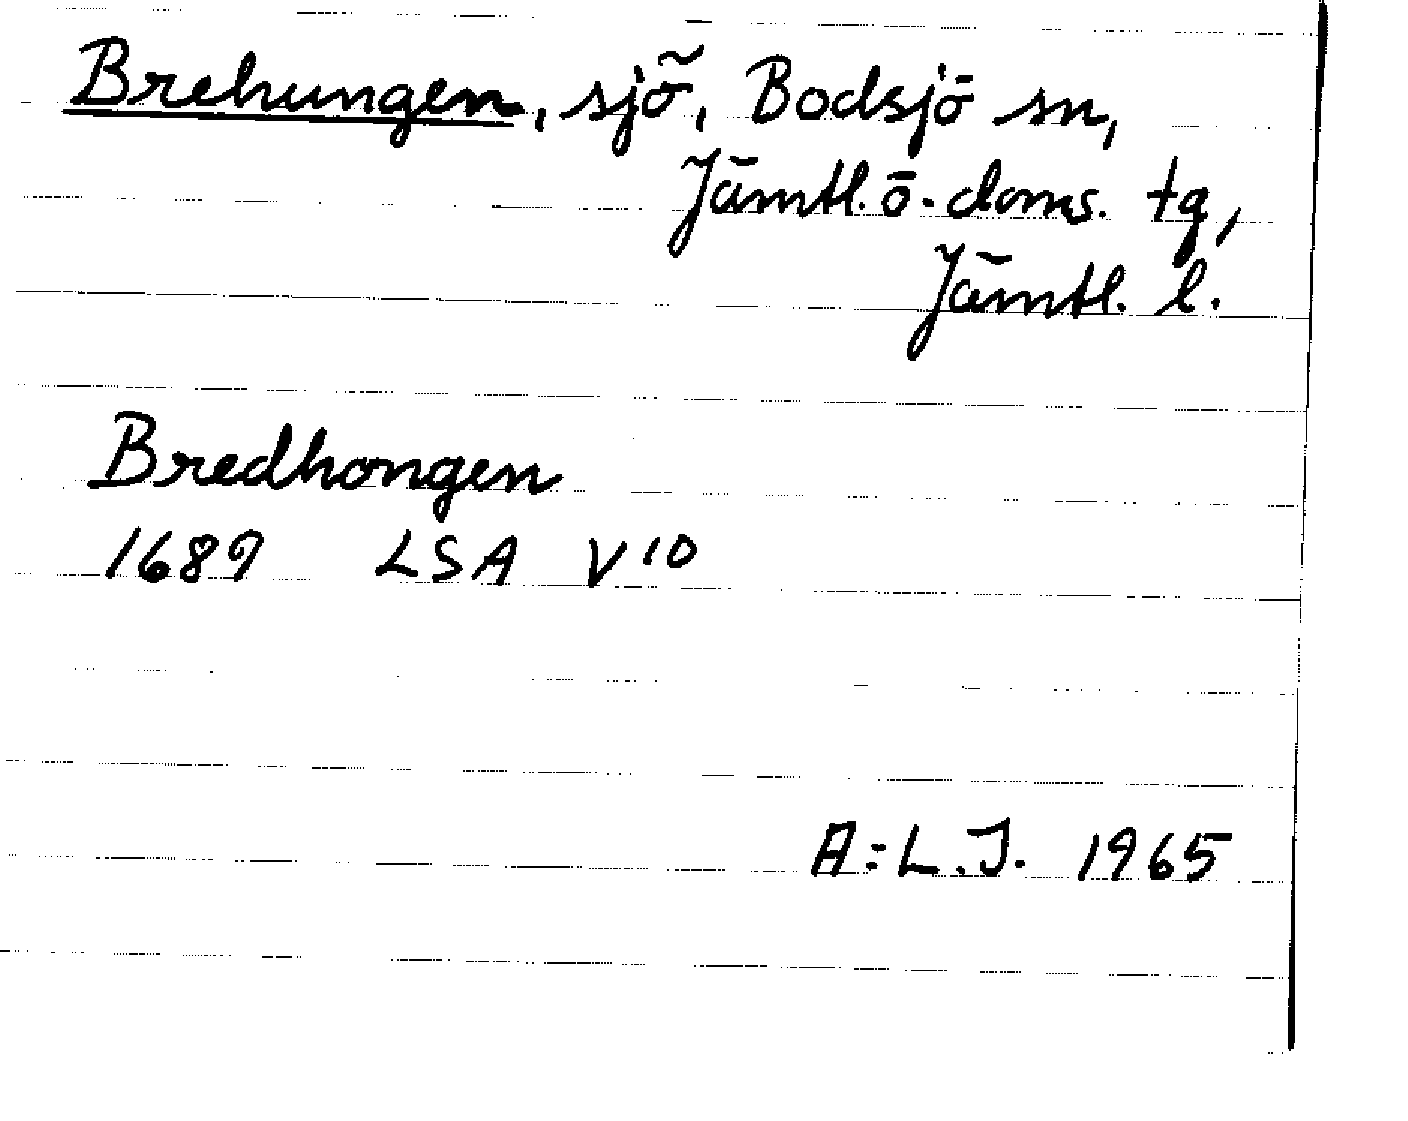 Brehungen, sjö, Bodsjö sn,
Jämtl. ö. doms. tg,
Jämtl. l.
Bredhongen
1689 LSA V 10
A:L.J. 1965